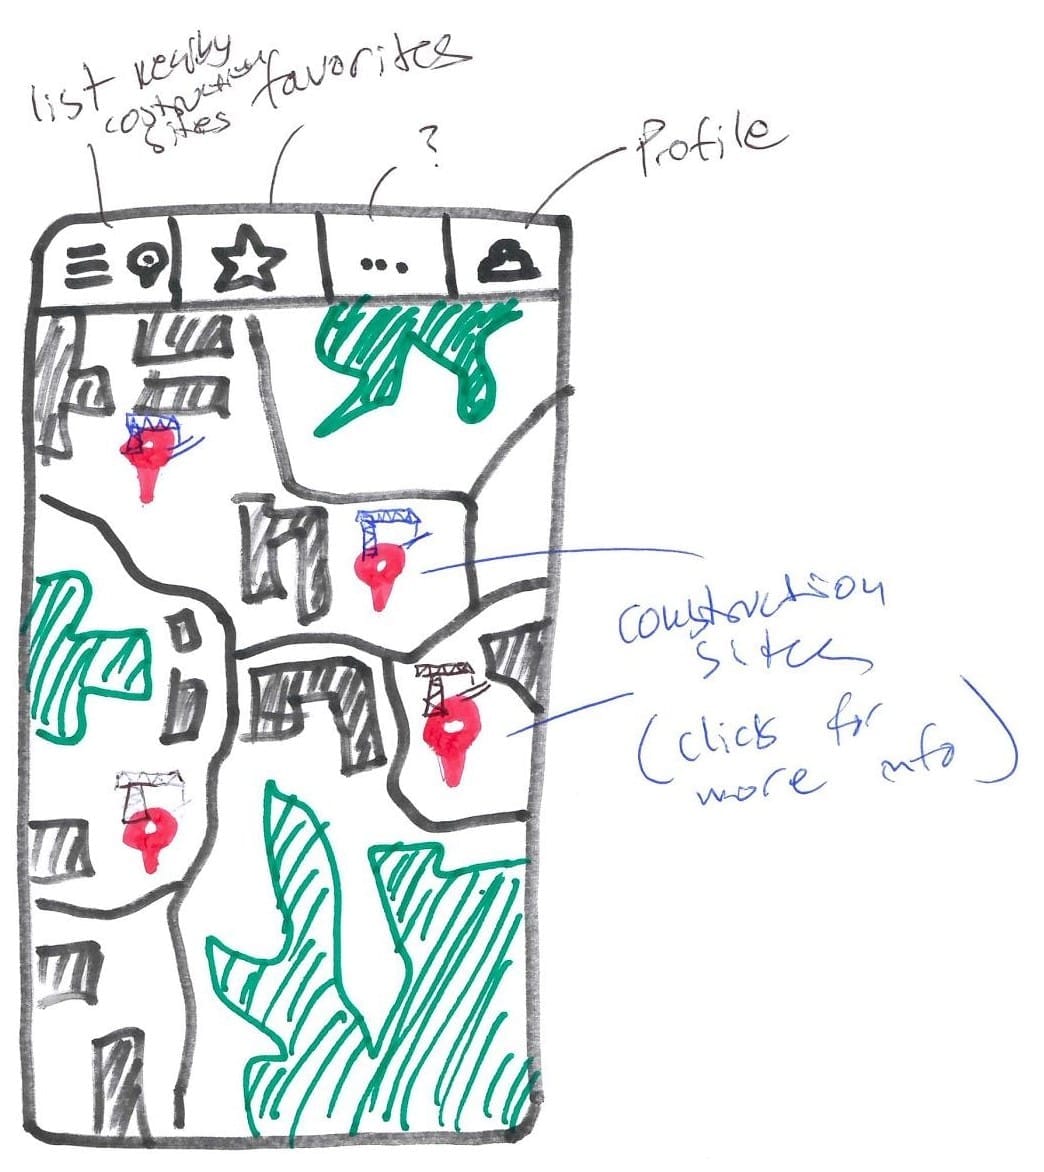 list nearby
costruction
sites
favorites
?
Profile
...
construction
sites
(click for
more info)